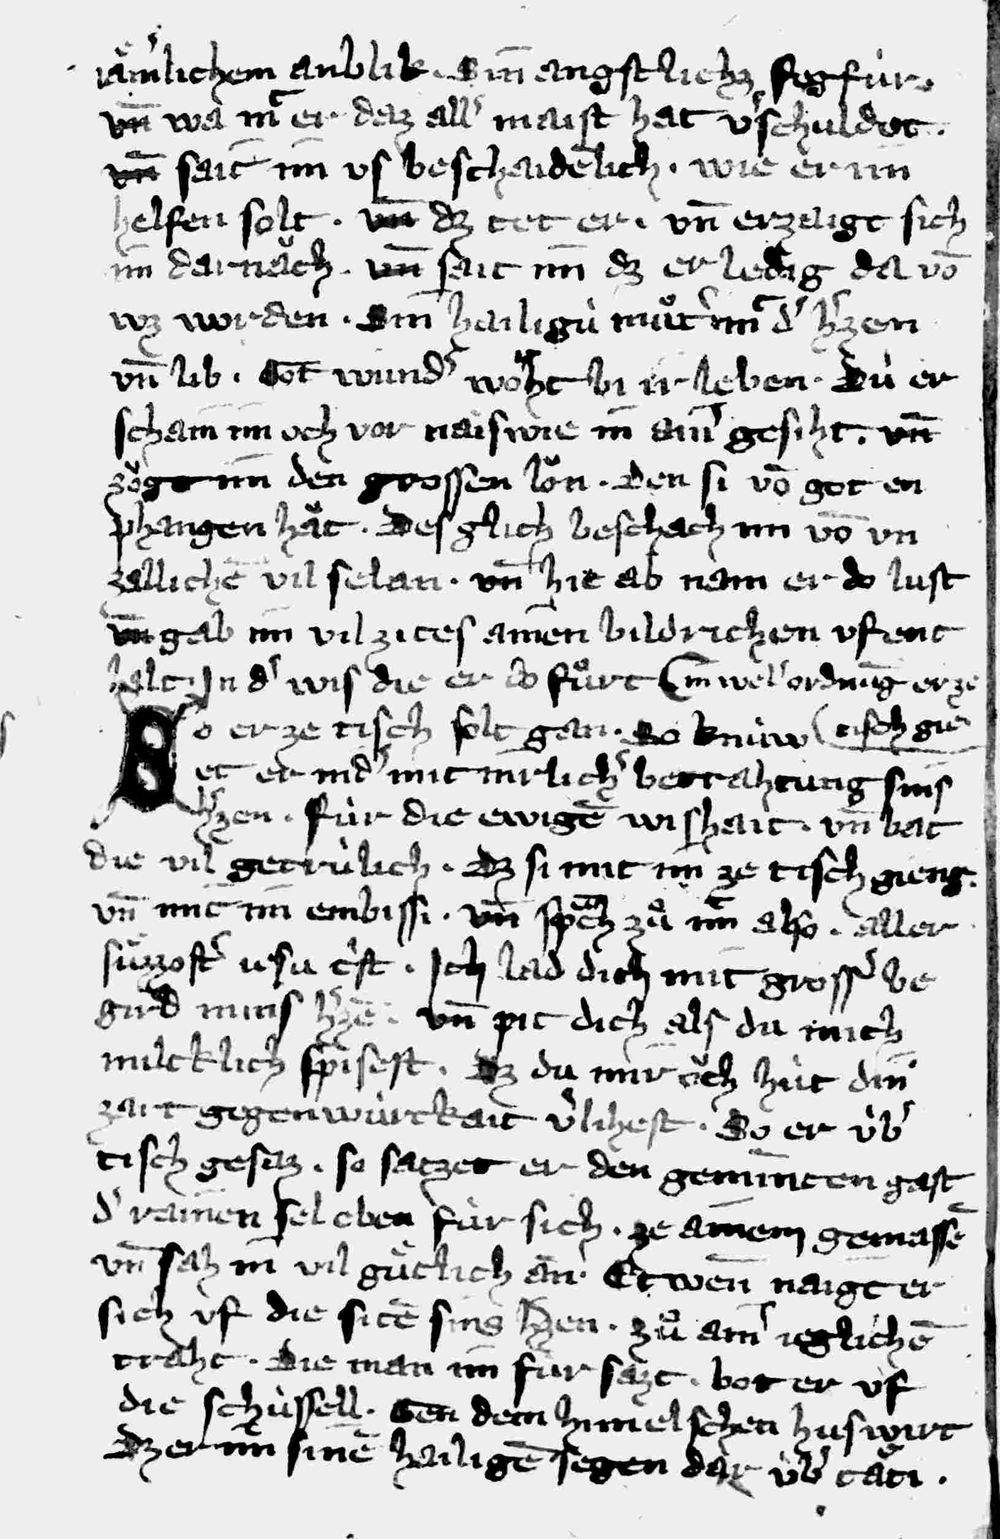 iämlichem anblik. Sin angstlichz fegfúr.
vn̄ wa mͭ er daz allʼ maist hat vʼschuldet.
vn̄ sait im̄ vs beschaidēlich. wie er im̄
helfen solt. vn̄ dz tet er. vn̄ erzaigt sich
im̄ darnǎch. vn̄ sait im̄ dz er ledig da vō
wz worden. Sin hailigú můtʼ im̄ dʼ hʼzen
vn̄ lib. Got wundʼ wǒht bi ir leben. Dú er
schain im̄ och vor naiswie in ainʼ gesiht. vn̄
zǒgt im̄ den grossen lǒn. den si vō got en
phangen hǎt. Des glich beschach im̄ vō vn
zallichē vil selan. vn̄ hie ab nam er do lust
vn̄ gab im̄ vil zites ainen bildrichen vfent
halt. In dʼ wis die er do fůrt In welʼ ordnūg er ze
So er ze tisch solt gan. So knúw tisch gie
et er nidʼ mit inrlichʼ betrahtung sins
hʼzen. fúr die ewigē wishait. vn̄ bat
die vil getrúlich. Dz si mit im̄ ze tisch gieng.
vn̄ mit im̄ enbissi. vn̄ spͣch zů im̄ also. aller
sůzzostʼ iesu cʼst. Ich lad dich mit grossʼ be
gird mins hʼzē. vn̄ pit dich als du mich
milcklich spisest. Dz du mir ǒch hút din
zart gegenwúrtkait vʼlihest. So er úbʼ
tisch gesaz. so satzet er den gemīnten gast
dʼ rainen sel eben fúr sich. ze ainem gemassē
vn̄ sah in vil gůtlich an. Etwen naigt er
sich vf die sitē sins hʼzen. zů ainʼ ieglichē
traht. die man im̄ fúr sazt. bot er vf
die schússell. Gen dem himelschen huswirt
Dz er im̄ sinē hailigē segen dar úbʼ tǎti.